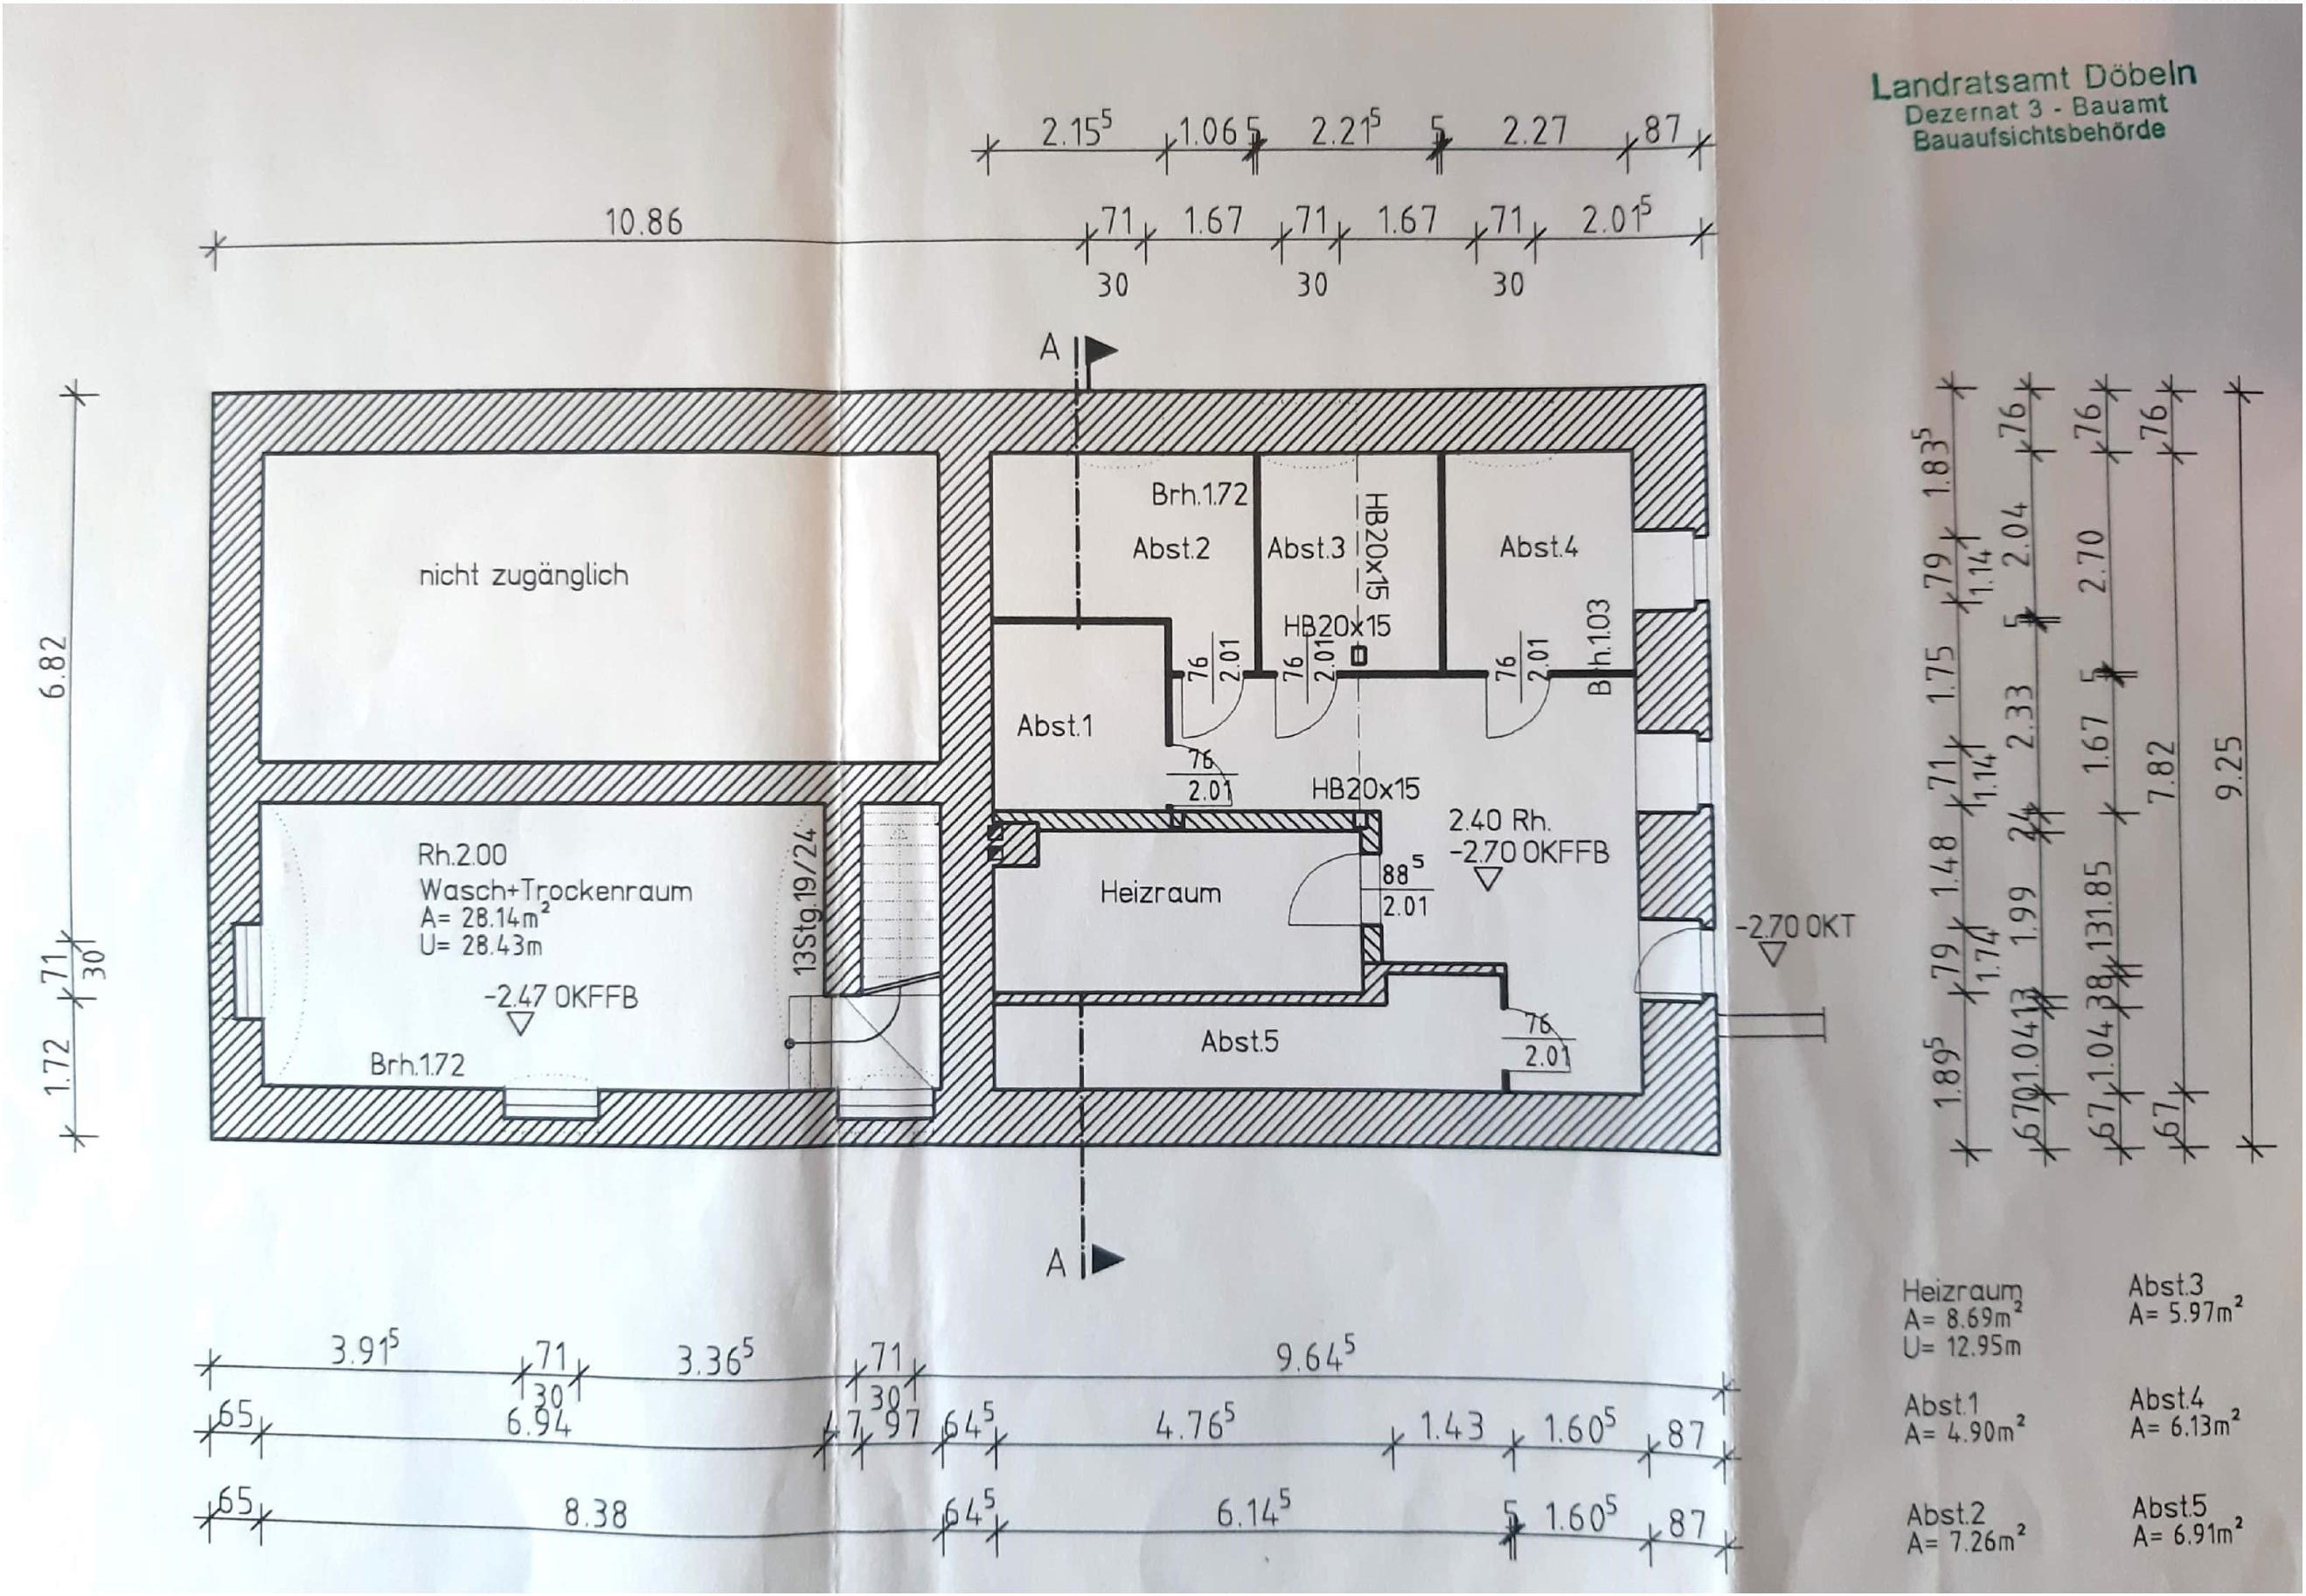 Landratsamt Döbeln
Dezernat 3 - Bauamt
Bauaufsichtsbehörde
2.15⁵ 1.06 5 2.21⁵ 5 2.27 87
10.86 71 1.67 71 1.67 71 2.01⁵
30 30 30
A
6.82
71
30
1.72
nicht zugänglich
Brh.1.72
Abst.2
Abst.3
HB20x15
HB20x15
Abst.4
Brh.1.03
76
2.01
76
2.01
76
2.01
Abst.1
76
2.01
HB20x15
2.40 Rh.
-2.70 OKFFB
Rh.2.00
Wasch+Trockenraum
A= 28.14m²
U= 28.43m
-2.47 OKFFB
Brh.1.72
13Stg.19/24
Heizraum
88⁵
2.01
-2.70 OKT
Abst.5
76
2.01
A
1.83⁵ 79 1.75 71 1.48 79 1.89⁵
1.14 1.14 1.74
76 2.04 5 2.33 24 1.99 13 1.04 67
76 2.70 5 1.67 1.85 13 38 1.04 67
76 7.82 67
9.25
3.91⁵ 71 3.36⁵ 71 9.64⁵
30 30
65 6.94 47 97 64⁵ 4.76⁵ 1.43 1.60⁵ 87
65 8.38 64⁵ 6.14⁵ 5 1.60⁵ 87
Heizraum
A= 8.69m²
U= 12.95m
Abst.3
A= 5.97m²
Abst.1
A= 4.90m²
Abst.4
A= 6.13m²
Abst.2
A= 7.26m²
Abst.5
A= 6.91m²